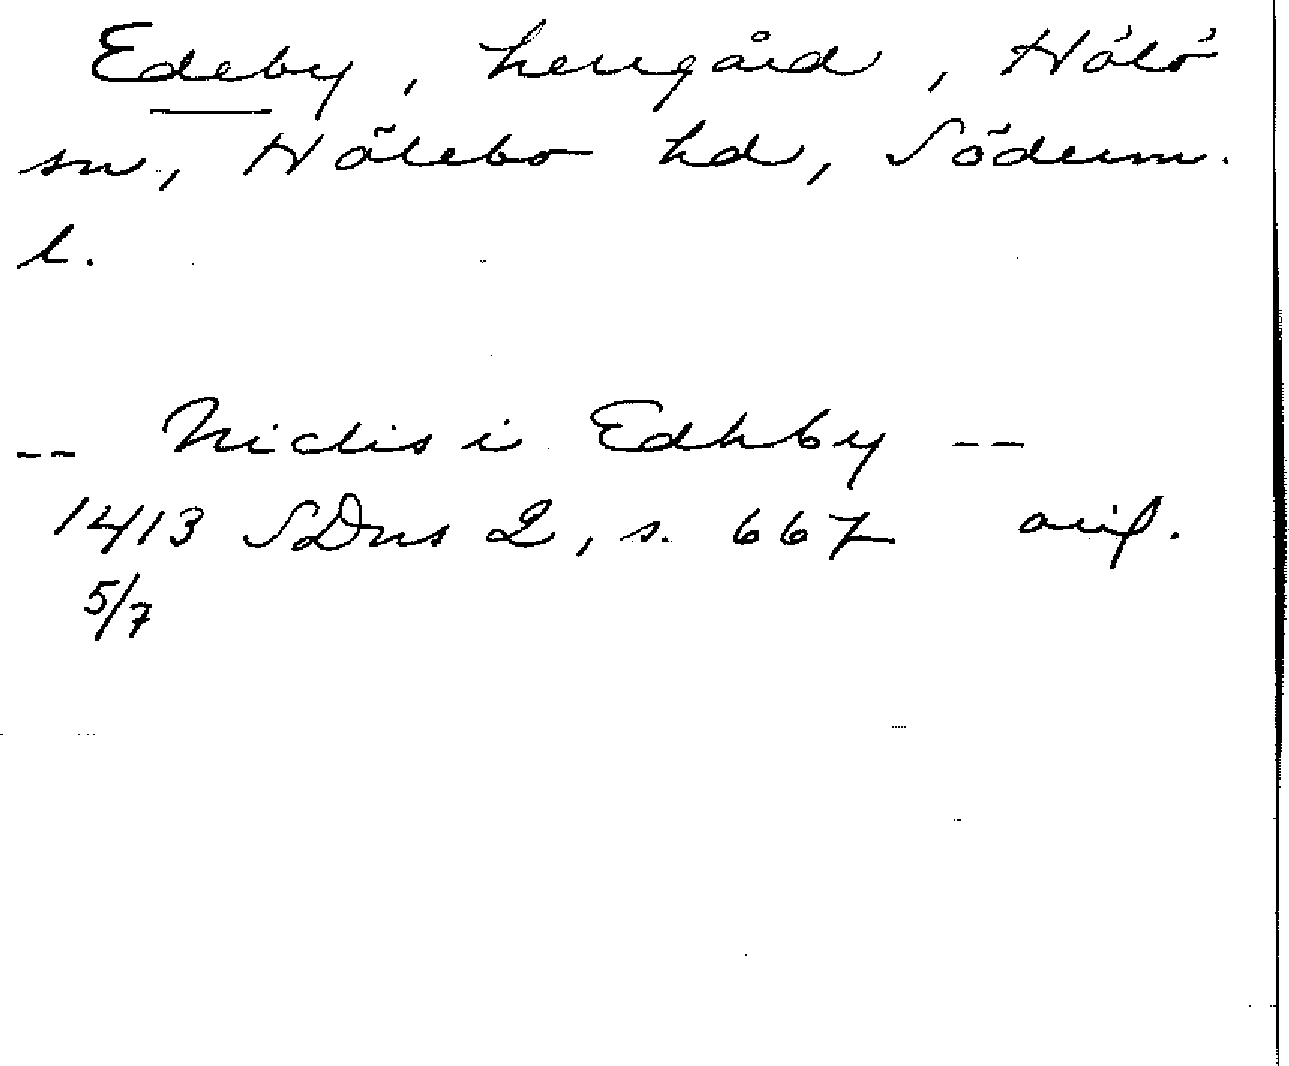 Edeby, herrgård, Hölö
sn, Hölebo hd, Söderm.
l.
-- Niclis i Edhby --
1413 SDns 2, s. 667 avs.
5/7